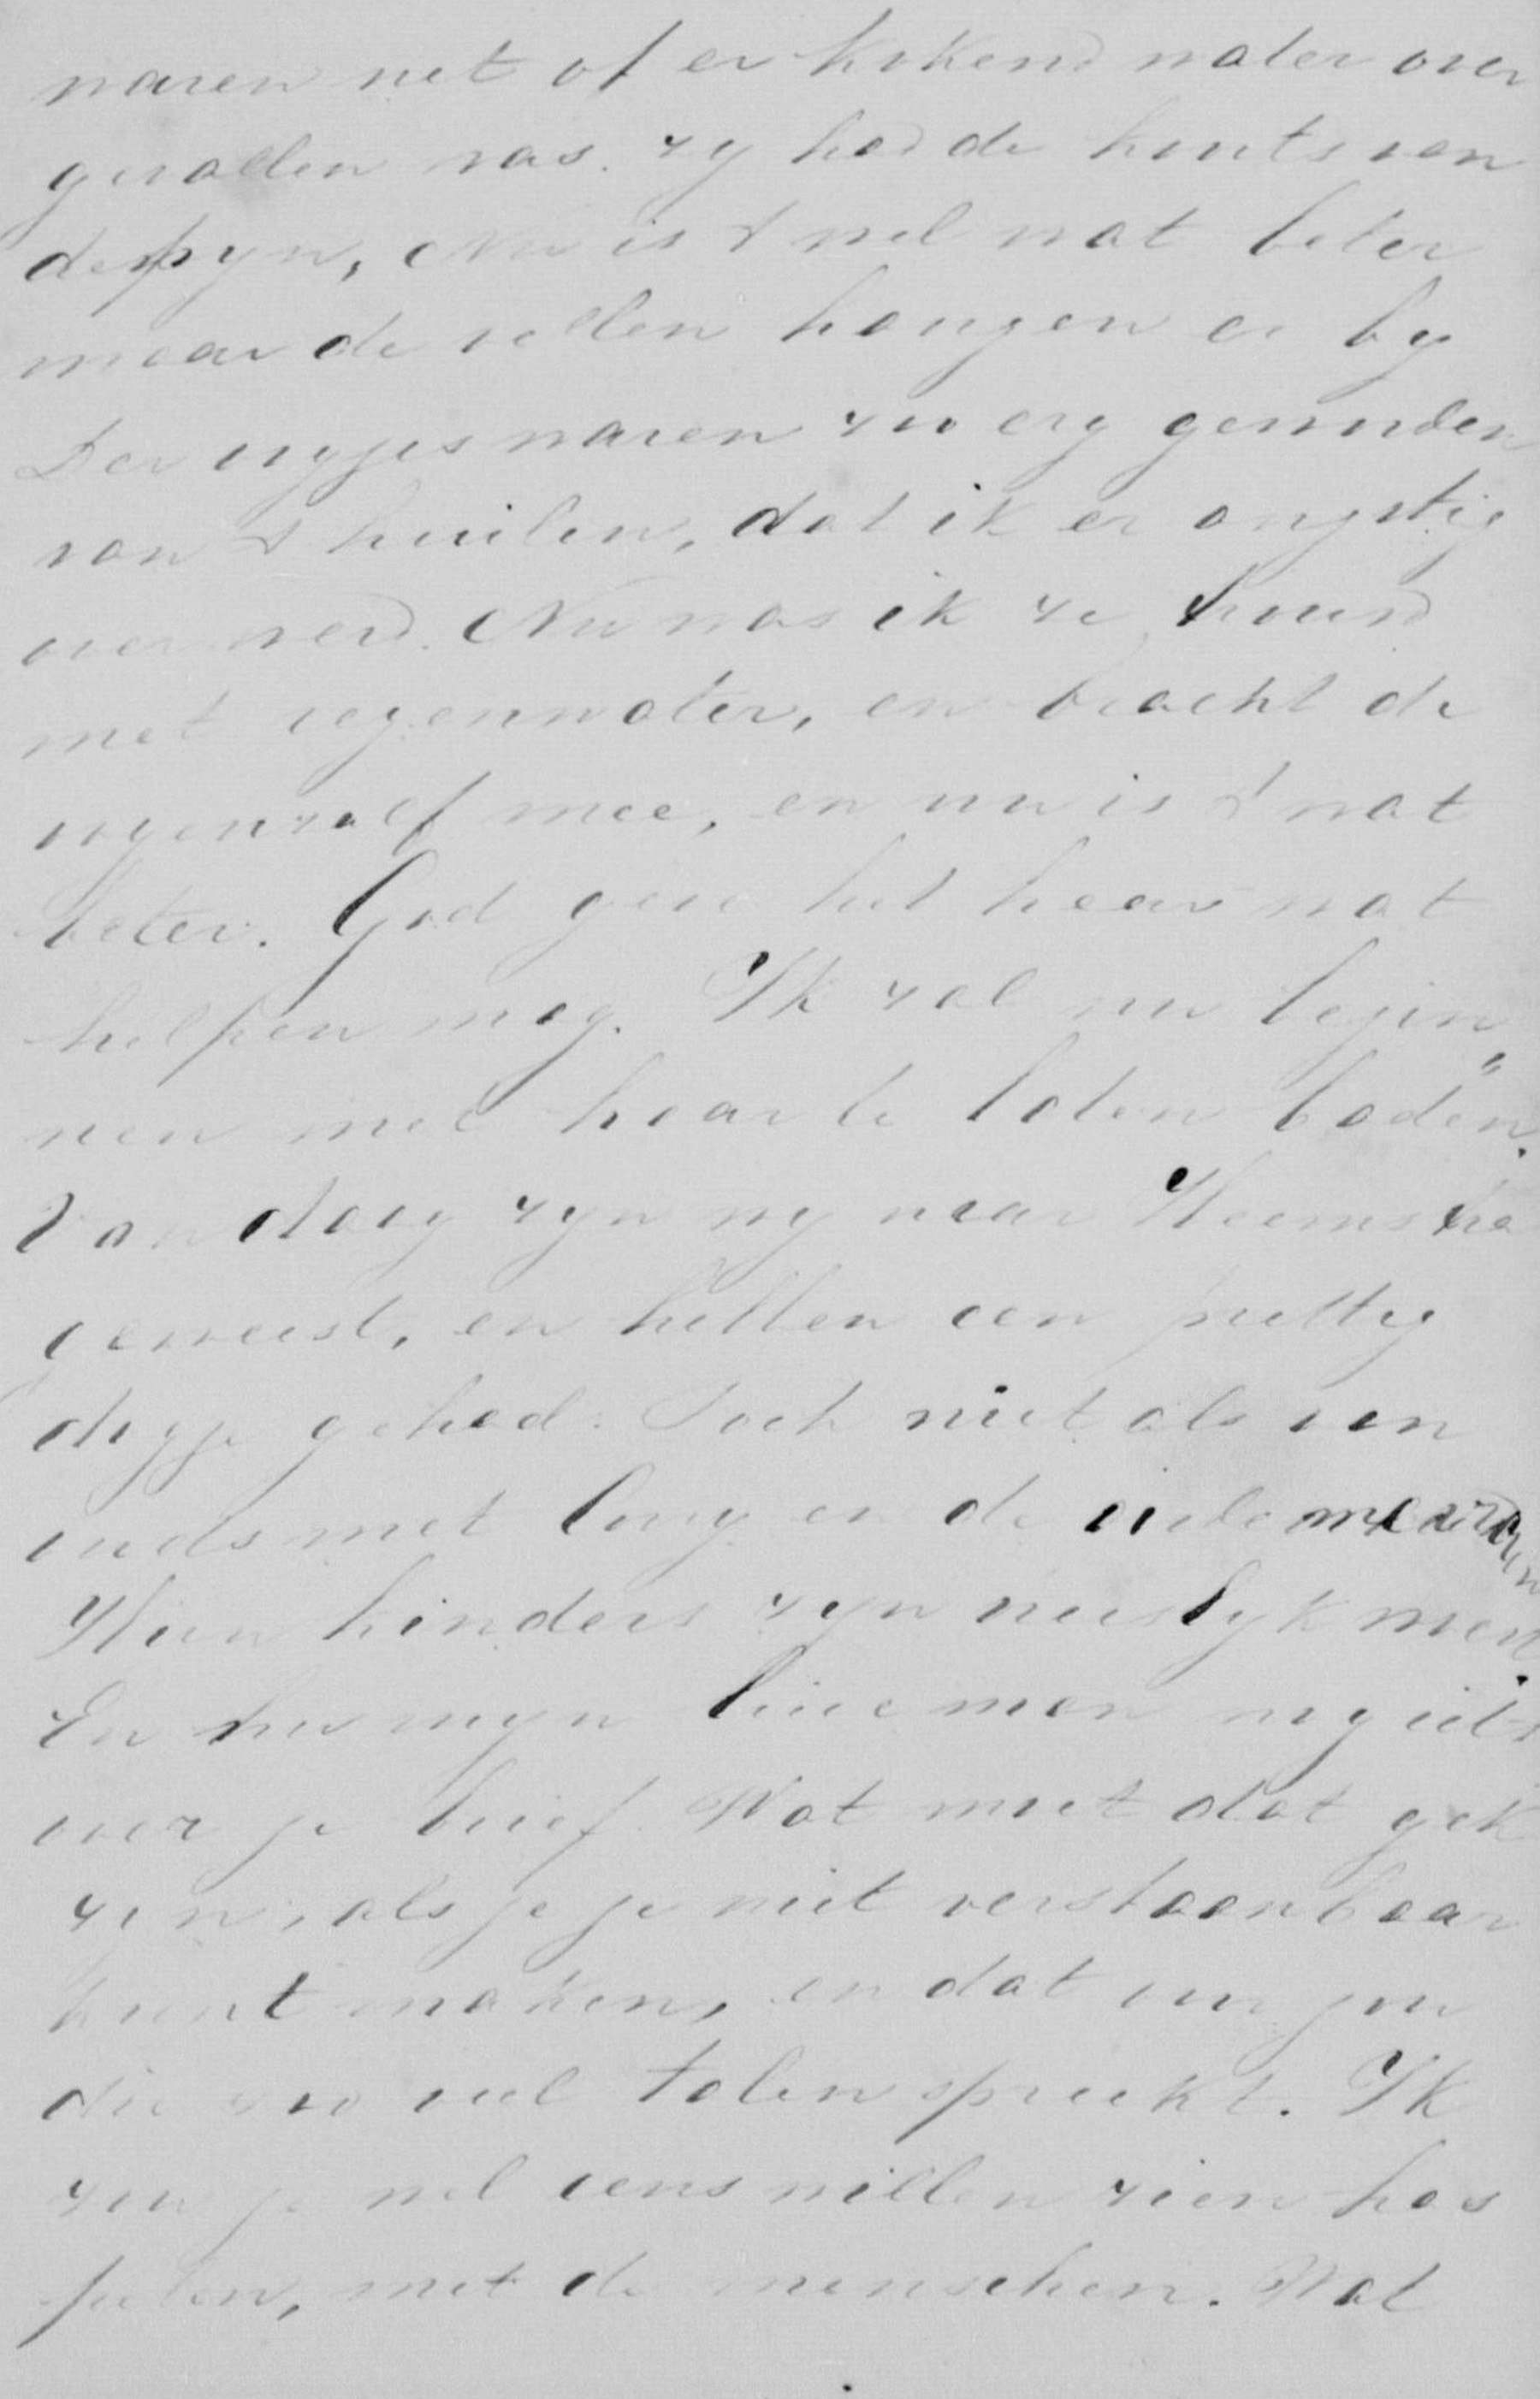 waren net of er kokend water over
gevallen was. zy had de koorts van
de pyn, Nu is 't wel wat beter
maar de vellen hangen er by
Der oogjes waren zoo erg gezwollen
van 't huilen, dat ik er angstig
over werd. Nu was ik ze
met regenwater, en bracht de
oogenzalf mee, en nu is 't wat
beter. God geve het haar wat
helpen mag. Ik zal nu begin„
nen met haar te laten baden.
Van daag zyn wy naar Heemstra
geweest, en hebben een prettig
dagje gehad. Toch niet als van
ouds met Cony en de
Hun kinders zyn vreeslyk
En nu myn lieve man nog iets
over je brief. Wat moet dat gek
zyn, als je je niet verstaanbaar
kunt maken, en dat voor jou
die zoo veel talen spreekt. Ik
zou je wel eens willen zien has
pelen, met de menschen. Wat